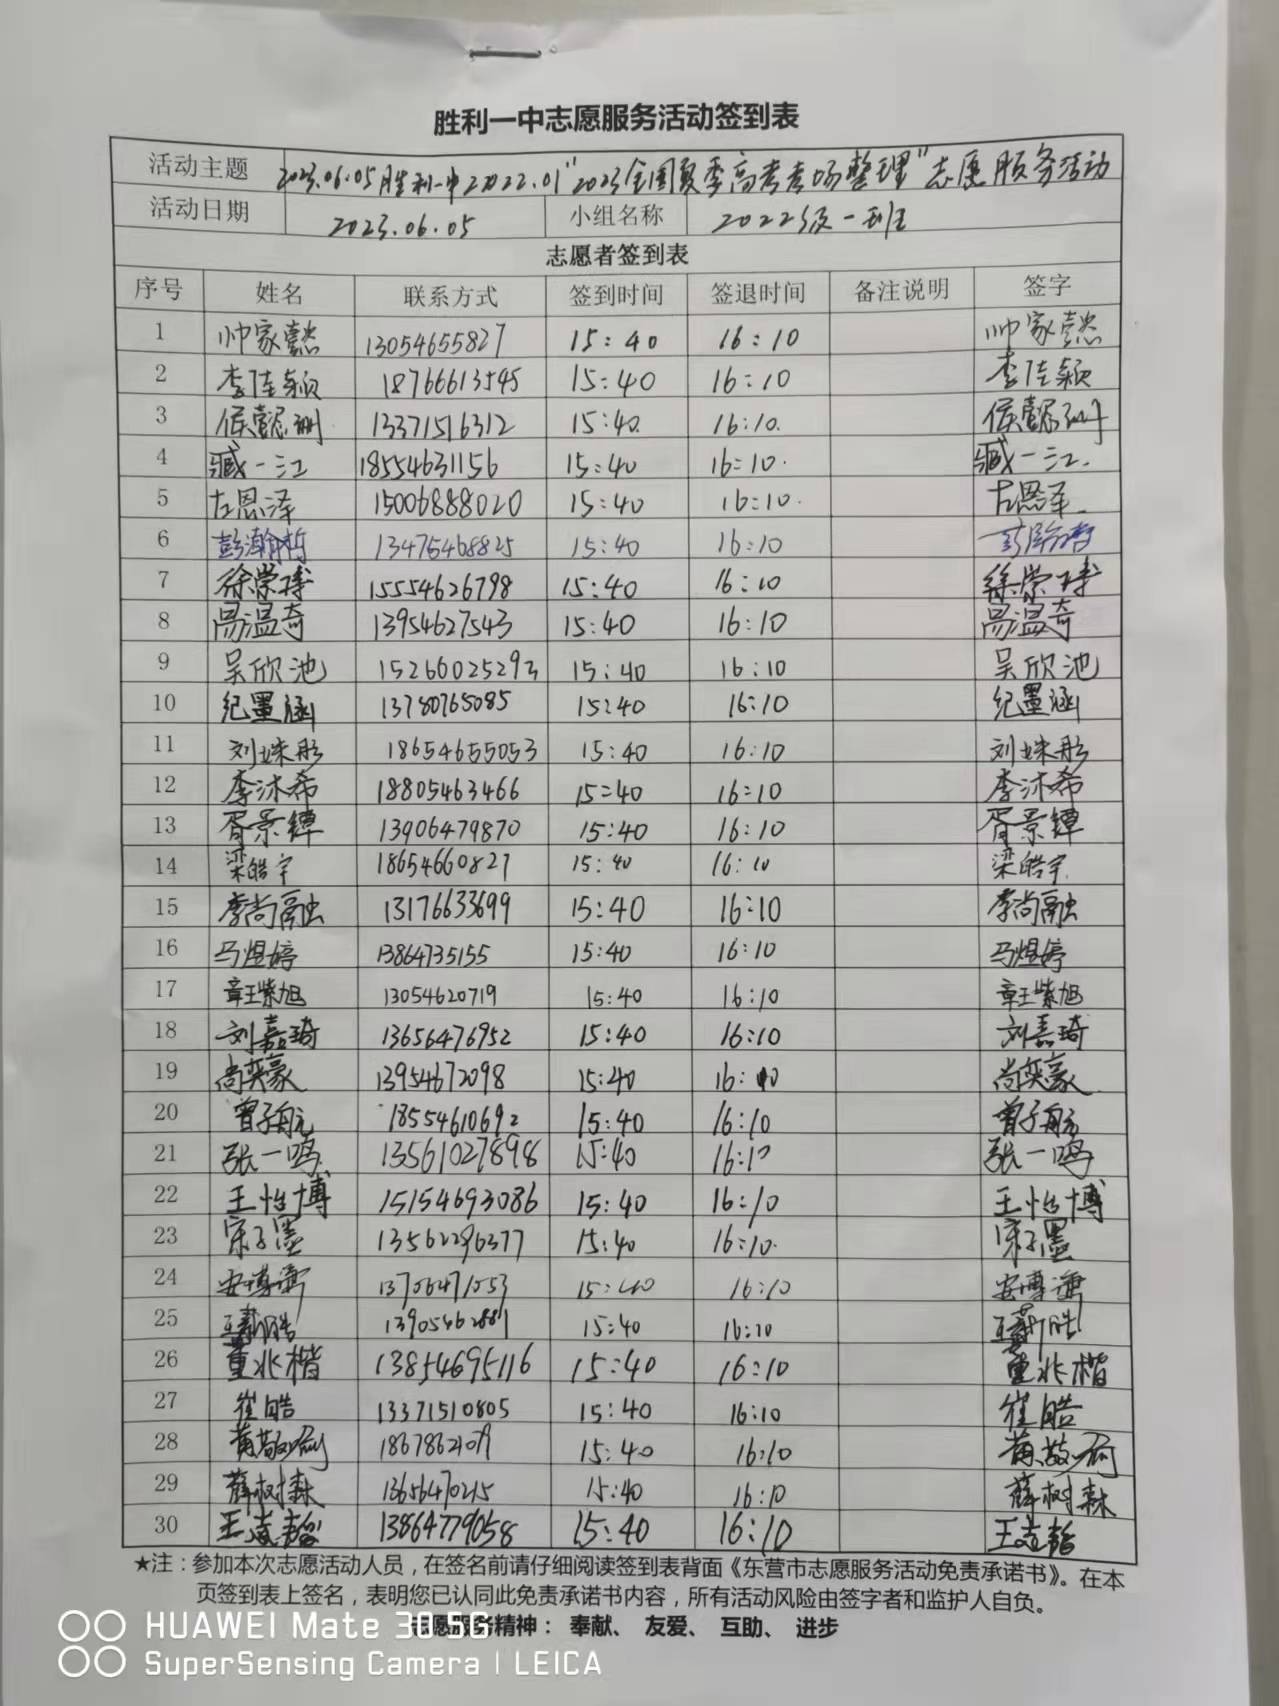 胜利一中志愿服务活动签到表
活动主题 2023.06.05胜利一中2022.01"2023全国夏季高考考场整理"志愿服务活动
活动日期 2023.06.05 小组名称 2022级一班
志愿者签到表
序号 姓名 联系方式 签到时间 签退时间 备注说明 签字
1 帅家懿 13054655827 15:40 16:10 帅家懿
2 李佳颖 18766613545 15:40 16:10 李佳颖
3 侯懿珊 13371516312 15:40 16:10 侯懿珊
4 臧一江 18554631156 15:40 16:10 臧一江
5 左恩泽 15006888020 15:40 16:10 左恩泽
6 彭瀚哲 13475468825 15:40 16:10 彭瀚哲
7 徐崇博 15554626798 15:40 16:10 徐崇博
8 昜温奇 13954627543 15:40 16:10 昜温奇
9 吴欣池 15260025293 15:40 16:10 吴欣池
10 纪墨涵 13780765085 15:40 16:10 纪墨涵
11 刘姝彤 18654655053 15:40 16:10 刘姝彤
12 李沐希 18805463466 15:40 16:10 李沐希
13 胥景镡 13906479870 15:40 16:10 胥景镡
14 梁皓宇 18654660827 15:40 16:10 梁皓宇
15 李尚融 13176633699 15:40 16:10 李尚融
16 马煜婷 13864735155 15:40 16:10 马煜婷
17 章王紫旭 13054620719 15:40 16:10 章王紫旭
18 刘嘉琦 13656476952 15:40 16:10 刘嘉琦
19 尚奕豪 13954672098 15:40 16:10 尚奕豪
20 曾子航 18554610692 15:40 16:10 曾子航
21 张一鸣 13561027898 15:40 16:10 张一鸣
22 王怡博 15154693086 15:40 16:10 王怡博
23 宋子墨 13562296377 15:40 16:10 宋子墨
24 安博 13706471053 15:40 16:10 安博
25 皓 13905462881 15:40 16:10 皓
26 董兆楷 13854695116 15:40 16:10 董兆楷
27 崔皓 13371510805 15:40 16:10 崔皓
28 黄敬 15:40 16:10 黄敬
29 薛树森 15:40 16:10 薛树森
30 王 13864779058 15:40 16:10 王
★注：参加本次志愿活动人员，在签名前请仔细阅读签到表背面《东营市志愿服务活动免责承诺书》。在本
页签到表上签名，表明您已认同此免责承诺书内容，所有活动风险由签字者和监护人自负。
志愿服务精神： 奉献、 友爱、 互助、 进步
HUAWEI Mate 30 5G
SuperSensing Camera | LEICA